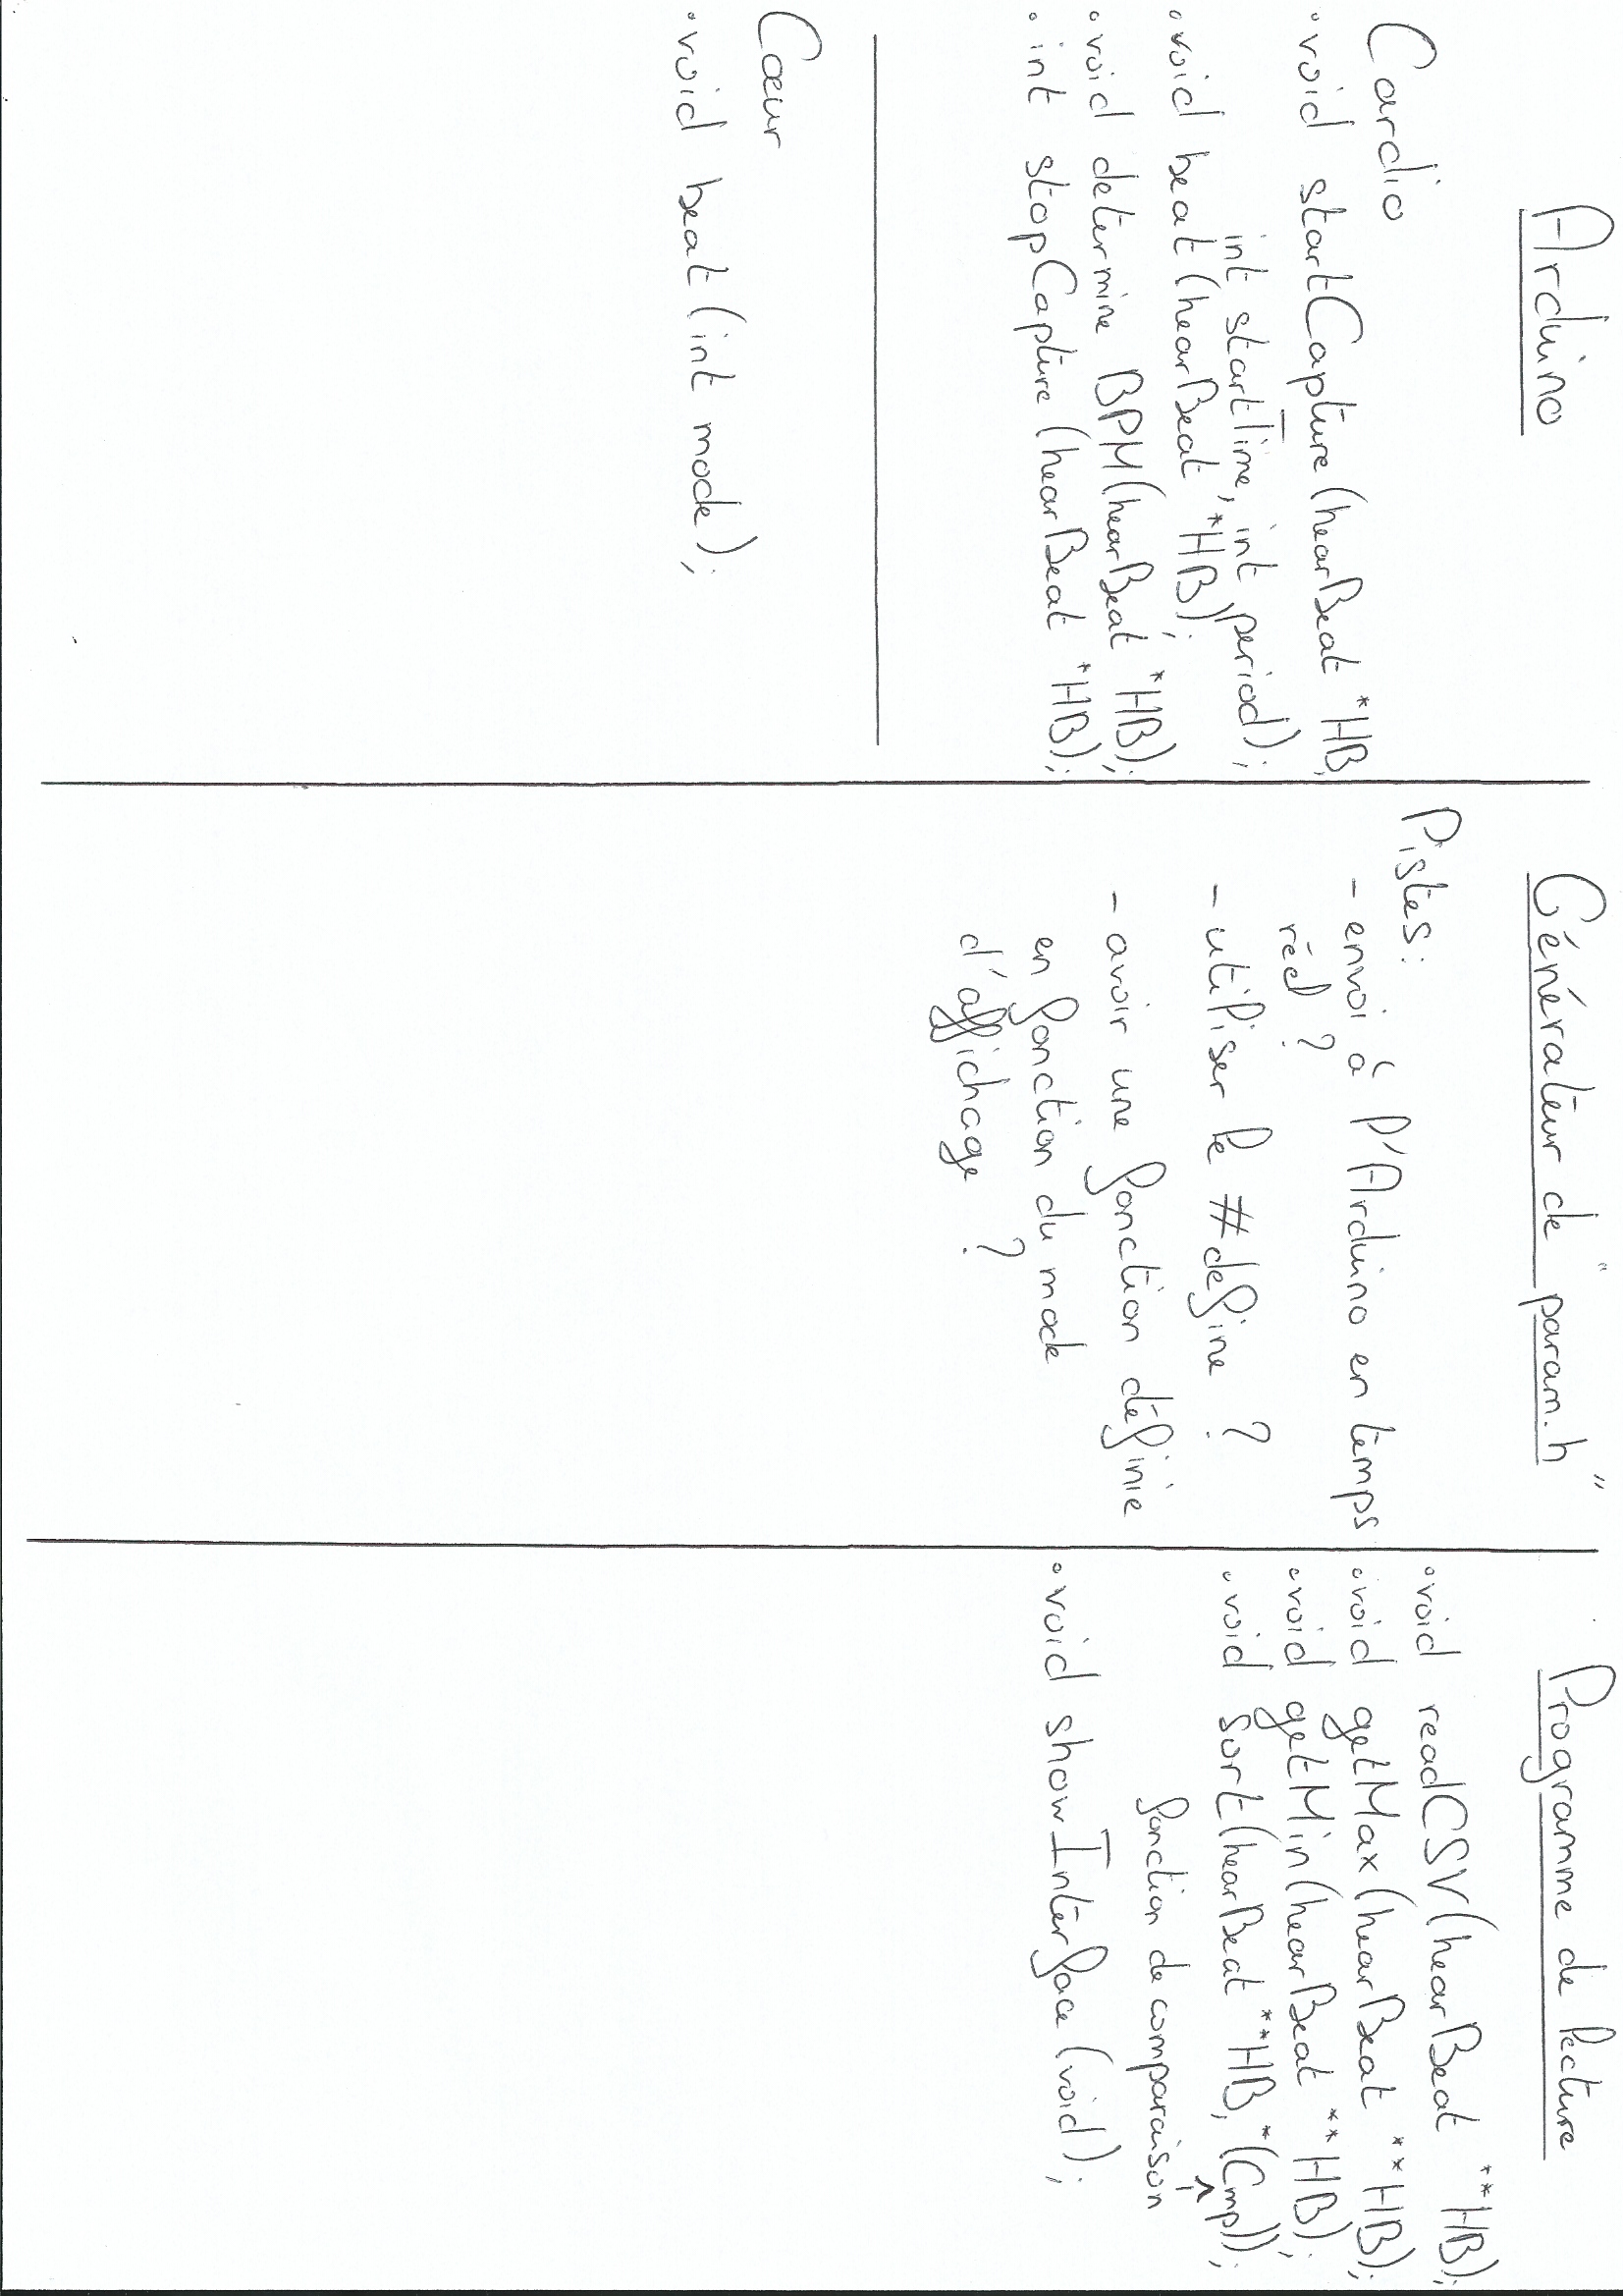 Arduino
Cardio
•void startCapture(hearBeat *HB,
int startTime, int period);
•void beat(hearBeat *HB);
•void determine BPM(hearBeat *HB);
•int stopCapture(hearBeat *HB);
Cœur
•void beat(int mode);
Générateur de "param.h"
Pistes:
- envoi à l'Arduino en temps
réel ?
- utiliser le #define ?
- avoir une fonction définie
en fonction du mode
d'affichage ?
Programme de lecture
•void readCSV(hearBeat **HB);
•void getMax(hearBeat **HB);
•void getMin(hearBeat **HB);
•void sort(hearBeat **HB, *(Cmp));
fonction de comparaison
•void showInterface(void);